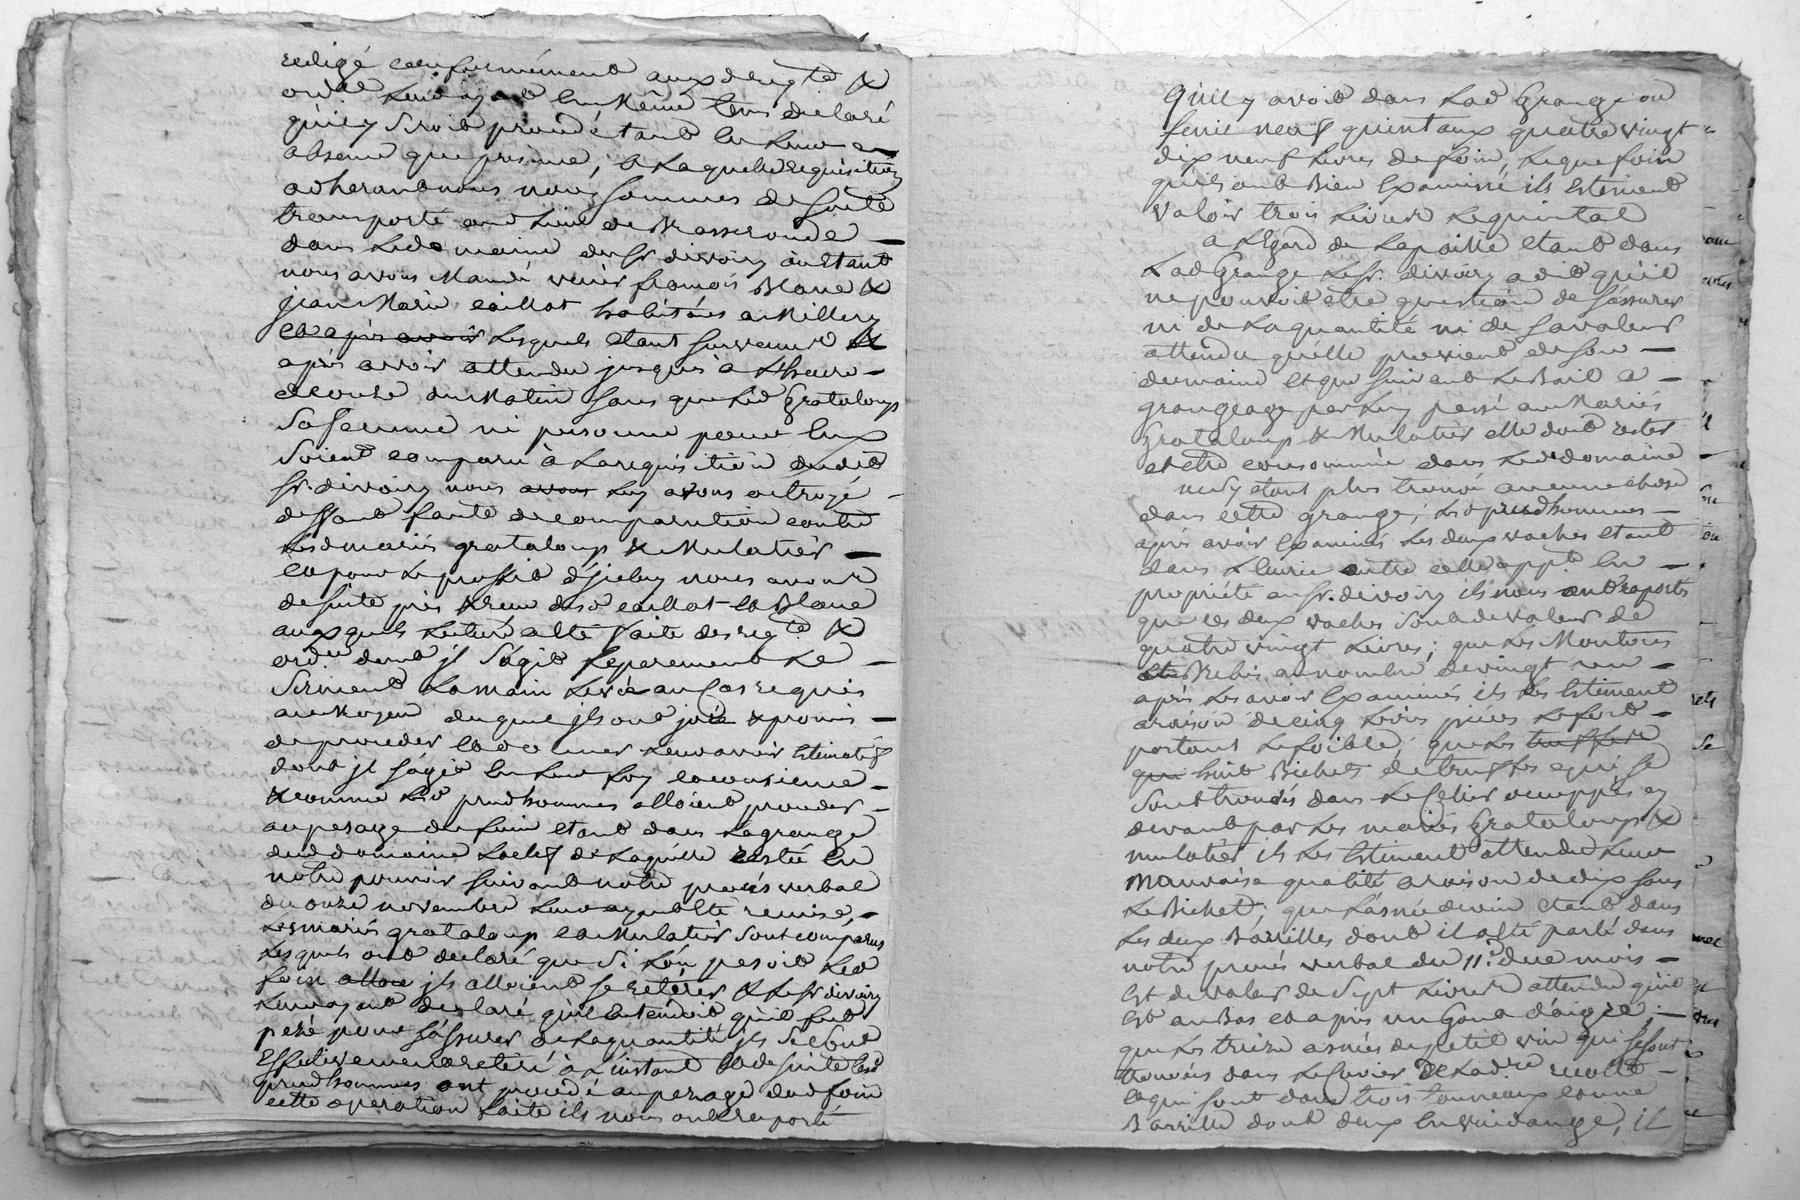 redigé conformément auxd. regts &
ordce leur ayant en même tems déclaré
qu'il y seroit procédé tant en leur
absence que présence, a laquelle requisition
adherant nous nous sommes de suite
transporté aud. lieu de Brasseronde
dans led. domaine du sr. divoiry ou étant
nous avons Mandé venir francois Blanc &
jean Marie caillot habitans a Millery
et après avoir lesquels etant survenus &
après avoir attendu jusques à l'heure
de onze du Matin sans que led. Grataloup
Sa femme ni personne pour Eux
Soient comparu à la requisition dudit
Sr. divoiry nous avons luy avons octroyé
deffaut faute de comparution contre
lesd. mariés grataloup & Mulatier
et pour le proffit d'jceluy nous avons
de suite pris & reçu desd. caillot et Blanc
auxquels lecture a été faite des regts &
ordces dont jl s'agit separement le
Serment la main levée au cas requis
au Moyen duquel jls ont juré & promis
de proceder et donner leur avis Estimatif
dont jl s'agit en leur foy et conscience
& comme lesd. prudhommes alloient proceder
au pesage du foin etant dans la grange
dud. domaine la clef de laquelle restée en
notre pouvoir suivant notre procés verbal
du onze novembre leur ayant été remise,
les mariés grataloup et Mulatier sont comparus
lesquels ont declaré que si l'on pesoit led.
foin allou jls alloient se retirer & le sr divoiry
leur ayant declaré qu'il entendoit qu'il fut
pesé pour s'assurer de la quantité jls se sont
Effectivement retiré à l'instant et de suite lesd.
prudhommes ont procedé au pesage dud. foin
cette operation faite ils nous ont raporté
Qu'il y avoit dans lad. Grange ou
fenie neuf quintaux quatre vingt
dix neuf livres de foin, leque foin
qu'ils ont Bien Examiné ils Estiment
valoir trois livres le quintal
a l'Egard de la paille etant dans
lad. Grange le sr. divoiry a dit qu'il
ne pouvoit etre question de s'assurer
ni de la quantité ni de sa valeur
attendu qu'elle provient de son
domaine et que suivant le Bail a
grangeage par luy passé aux Mariés
Grataloup & Mulatier elle doit rester
et etre consommée dans led. domaine
ne s'y etant plus trouvé aucune chose
dans cette grange; lesd. prudhommes
après avoir Examinés les deux vaches etant
dans l'Ecurie outre celle appte. en
propriété au sr. divoiry ils nous ont raporté
que les deux vaches sont de valeur de
quatre vingt livres; que les Moutons
et Brebis au nombre de vingt un
après les avoir Examinés ils les Estiment
a raison de cinq livres pièces le fort
portant le foible; que les truffes
que huit Bichets de truffes qui se
Sont trouvés dans le Celier occuppés cy
devant par les mariés Grataloup &
mulatier ils les Estiment attendu leur
Mauvaise qualité a raison de dix sous
le Bichet; que l'asnée de vin etant dans
les deux Barrilles dont il a été parlé dans
notre procés verbal du 11e. du mois
Est de valeur de Sept livres attendu qu'il
Est au Bas et a pris un Gout d'aigre;
que les treize asnées de petit vin qui se sont
trouvées dans le Cuvier de lad. re recolte
et qui sont dans trois tonneaux et une
Barrille dont deux En vuidange, il